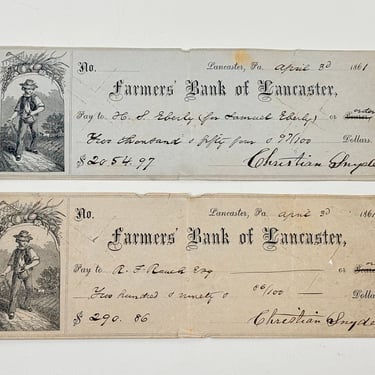 No. Lancaster, Pa. April 3d 1861
Farmers' Bank of Lancaster,
Pay to H. S. Eberly (for Samuel Eberly) or order Bearer,
Two thousand & fifty four & 97/100 Dollars.
$2054.97 Christian Snyde
No. Lancaster, Pa. April 3d 186
Farmers' Bank of Lancaster,
Pay to R. F. Rauch Esq or or
Two hundred & ninety & 86/100 Dolla
$290.86 Christian Snyde